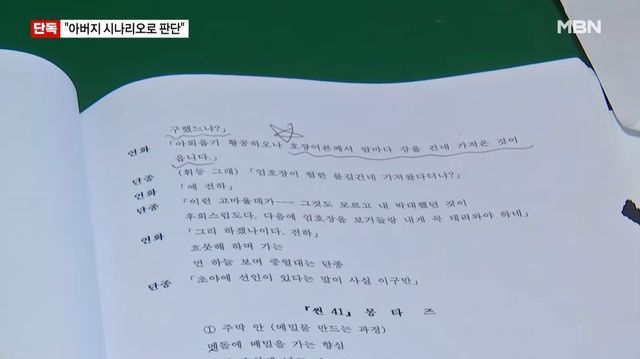 단독 "아버지 시나리오로 판단"
MBN
구했느냐?」
연화 「아뢰옵기 황공하오나 호장어른께서 밤마다 강을 건네 가져온 것이
옵니다.」
단종 (휘둥 그래) 「엄호장이 험한 물길건네 가져왔다더냐?」
연화 「예 전하」
단종 「이런 고마울데가--- 그것도 모르고 내 박대했던 것이
후회스럽도다. 다음에 엄호장을 보거들랑 내게 꼭 데려와야 하네」
연화 「그리 하겠나이다. 전하」
흐뭇해 하며 가는
먼 하늘 보며 중얼대는 단종
단종 「초야에 선인이 있다는 말이 사실 이구만」
『씬 41』 몽 타 즈
① 주막 안 (메밀묵 만드는 과정)
맷돌에 메밀을 가는 향심